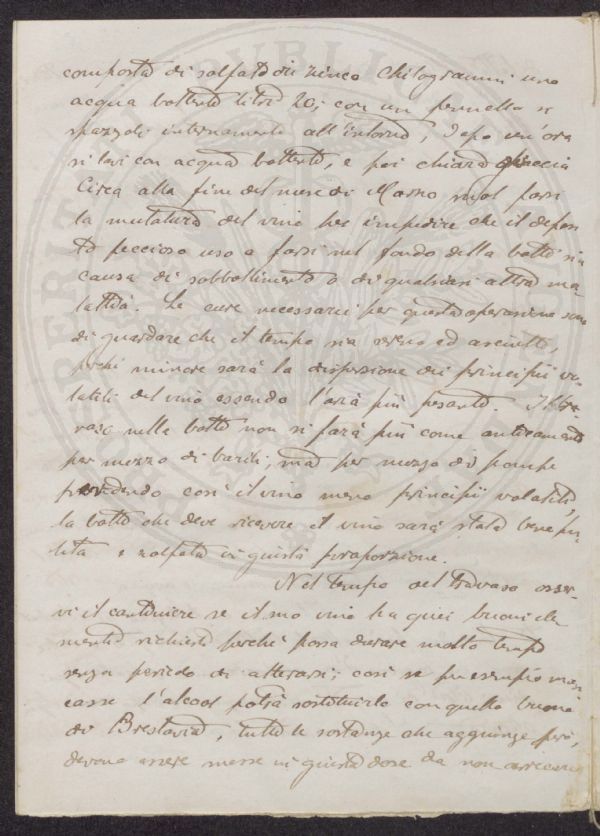 composta di solfato di zinco chilogrammi uno
acqua bollente litri 20; con un pennello si
spazzoli internamente all'intorno, dopo un'ora
si lavi con acqua bollente, e poi chiara ghiaccia
Circa alla fine del mese di Marzo suol farsi
la mutatura del vino per impedire che il deposi
to feccioso uso a farsi nel fondo della botte sia
causa di sobbollimento o di qualsiasi altra ma
lattia. Le cure necessarie per questa operazione sono
di guardare che il tempo sia sereno ed asciutto,
perchè minore sarà la dispersione dei principii vo-
latili del vino essendo l'aria più pesante. Il tra-
vaso nelle botti non si farà più come anticamente
per mezzo di barili, ma per mezzo di pompe
perdendo così il vino meno principii volatili,
la botte che deve ricevere il vino sarà stata bene pu-
lita e solfata in giusta proporzione.
Nel tempo del travaso osser-
vi il cantiniere se il suo vino ha quei buoni ele
menti richiesti perchè possa durare molto tempo
senza pericolo di alterarsi; così se per esempio man
casse l'alcool potrà sostituirlo con quello buono
di Breslavia, tutte le sostanze che aggiunge però,
devono essere messe in giusta dose da non arrecare